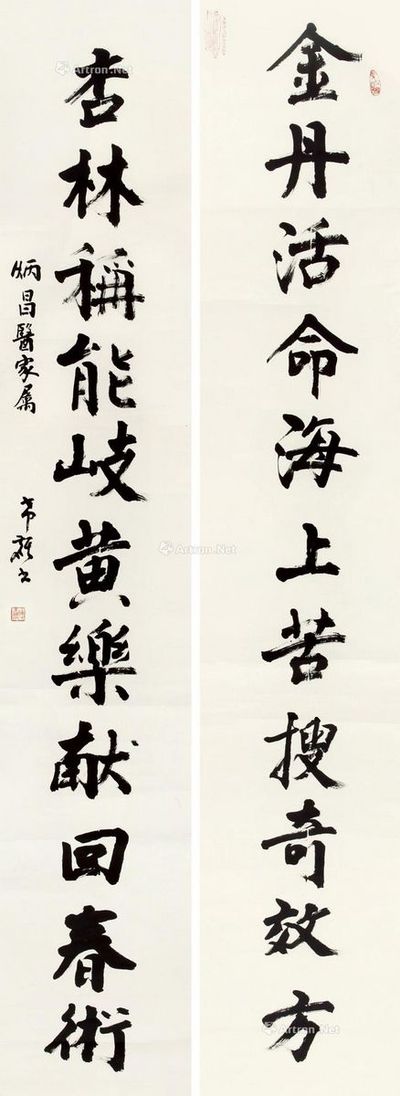 金丹活命海上苦搜奇效方
杏林稱能岐黄樂献回春術
炳昌醫家属
Artron.Net
Artron.Net
Artron.Net